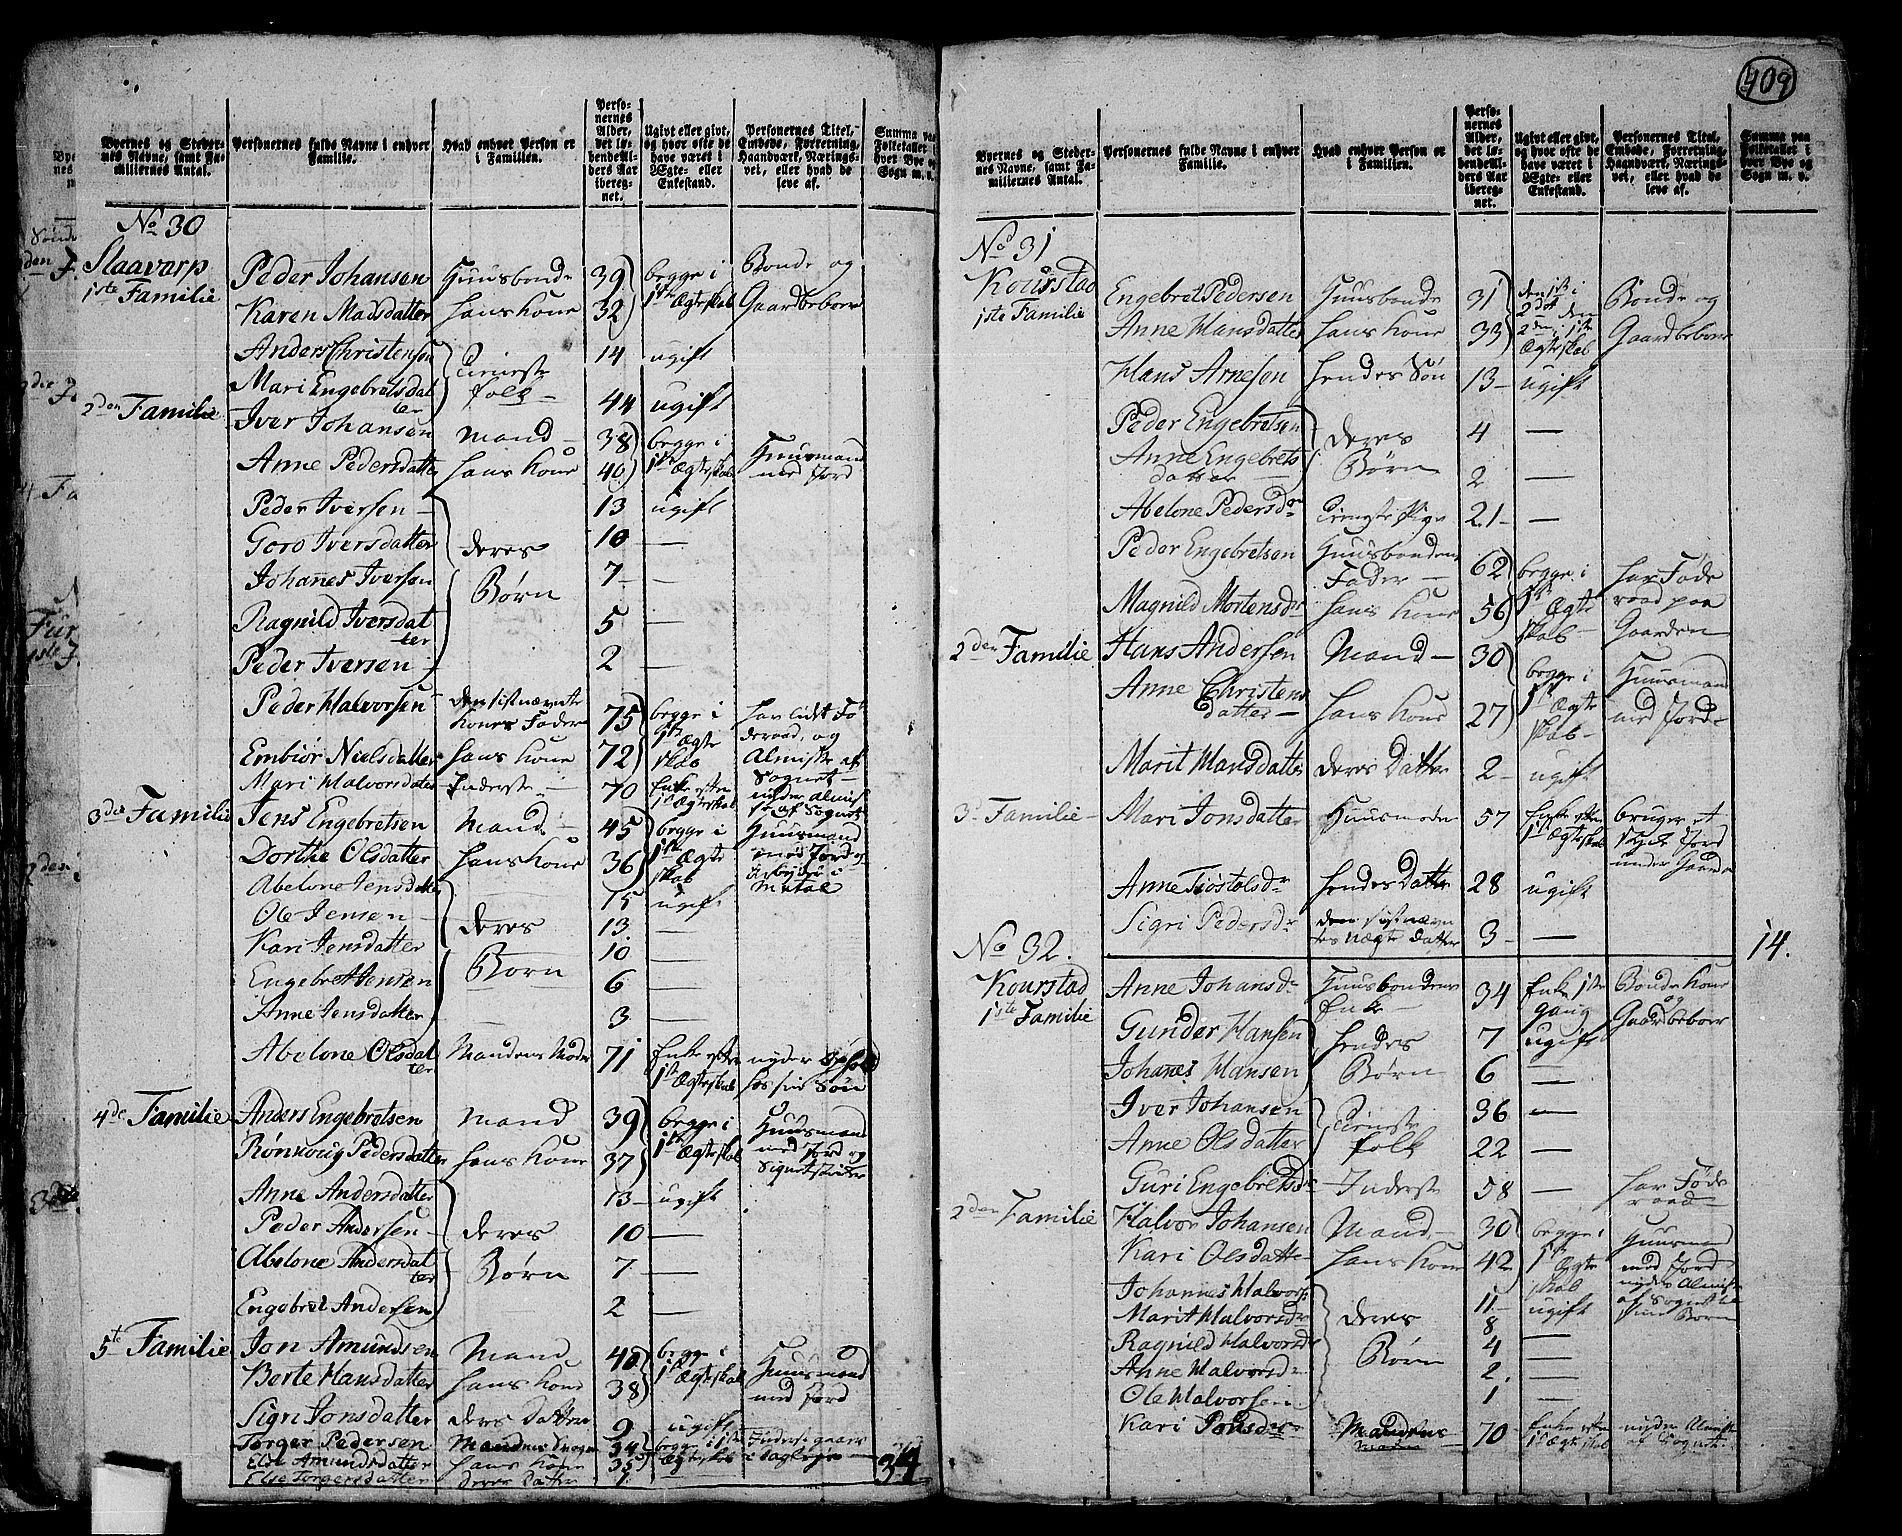 409
Byernes og Stedernes Navne, samt Familiernes Antal.
Personernes fulde Navne i enhver Familie.
Hvad enhver Person er i Familien.
Personernes Alder, det løbende Alders Aar iberegnet.
Ugivt eller givt, og hvor ofte de have været i Ægte- eller Enkestand.
Personernes Titel, Embede, Forretning, Haandværk, Næringsvei, eller hvad de leve af.
Summa paa Folketallet i hver Bye og Sogn m. v.
No 30
Slaavarp
1ste Familie
Peder Johansen Huusbonde 39 begge i Bonde og
Karen Madsdatter hans Kone 32 1ste Ægteskab Gaardbeboer
Anders Christensen Tieneste 14 ugift
Mari Engebretsdatter folk 44 ugift
2den Familie
Iver Johansen Mand 38 begge i Huusmand
Anne Pedersdatter hans Kone 40 1ste Ægteskab med Jord
Peder Iversen 13 ugift
Goro Iversdatter deres 10 —
Johanes Iversen Børn 7 —
Ragnild Iversdatter 5 —
Peder Iversen 2 —
Peder Halvorsen den sistnævnte Kones Fader 75 begge i har lidt Føderaad, og
Embiør Nielsdatter hans Kone 72 1ste Ægteskab Almisse af Sognet
Mari Halvorsdatter Inderste 70 Enke efter 1ste Ægteskab nyder Almisse af Sognet
3die Familie
Jens Engebretsen Mand 45 begge i Huusmand
Dorthe Olsdatter hans Kone 36 1ste Ægteskab med Jord og Arbejder i Metal
Abelone Jensdatter 15 ugift
Ole Jensen deres 13 —
Kari Jensdatter 10 —
Engebret Jensen Børn 6 —
Anne Jensdatter 3 —
Abelone Olsdatter Mandens Moder 71 Enke efter 1ste Ægteskab nyder Ophold hos sin Søn
4de Familie
Anders Engebretsen Mand 39 begge i Huusmand
Rønnoug Pedersdatter hans Kone 37 1ste Ægteskab med Jord og Signetstikker
Anne Andersdatter 13 ugift
Peder Andersen deres 10 —
Abelone Andersdatter Børn 7 —
Engebret Andersen 2 —
5te Familie
Jon Amundsen Mand 40 begge i Huusmand
Berte Hansdatter hans Kone 38 1ste Ægteskab med Jord
Sigri Jonsdatter deres Datter 9 ugift
Torger Pedersen Mandens Svoger 34 begge i 1ste
Else Amundsdatter hans Kone 35 Ægteskab
Else Torgersdatter deres Datter
34
Byernes og Stedernes Navne, samt Familiernes Antal.
Personernes fulde Navne i enhver Familie.
Hvad enhver Person er i Familien.
Personernes Alder, det løbende Alders Aar iberegnet.
Ugivt eller givt, og hvor ofte de have været i Ægte- eller Enkestand.
Personernes Titel, Embede, Forretning, Haandværk, Næringsvei, eller hvad de leve af.
Summa paa Folketallet i hver Bye og Sogn m. v.
No 31
Kourstad
1ste Familie
Engebret Pedersen Huusbonde 31 den 1ste i 2det den Bonde og
Anne Hansdatter hans Kone 33 2den i 1ste Ægteskab Gaardbeboer
Hans Arnesen hendes Søn 13 ugift
Peder Engebretsen deres 4 —
Anne Engebretsdatter Børn 2 —
Abelone Pedersdr Tieneste Pige 21 —
Peder Engebretsen Huusbondens Fader 62 begge i har Føde
Magnild Mortensdr hans Kone 56 1ste Ægteskab raad paa Gaarden
2den Familie
Hans Andersen Mand 30 begge i Huusmand
Anne Christensdatter hans Kone 27 1ste Ægteskab med Jord
Marit Hansdatter deres Datter 2 ugift
3 Familie
Mari Jonsdatter Huusmoder 57 Enke efter 1ste Ægteskab bruger et Jord under Gaarden
Anne Tiøstolsdr hendes Datter 28 ugift
Sigri Pedersdr den sistnævntes uægte Datter 3 —
14.
No 32.
Kourstad
1ste Familie
Anne Johansdr Huusbondens Enke 34 Enke 1ste gang Bonde Kone og Gaardbeboer
Gunder Hansen hendes 7 ugift
Johanes Hansen Børn 6 —
Iver Johansen Tieneste 36 —
Anne Olsdatter folk 22 —
Guri Engebretsdr Inderste 58 — har Føderaad
2den Familie
Halvor Johansen Mand 30 begge i Huusmand
Kari Olsdatter hans Kone 42 1ste Ægteskab med Jord nyder Almisse af Sognet til sine Børn
Johannes Halvors: 11 ugift
Marit Halvorsdr deres 8 —
Ragnild Halvorsdr 4 —
Anne Halvorsdr Børn 2 —
Ole Halvorsen 1 —
Kari Mandens Moder 70 Enke efter 1ste Ægteskab nyder Almisse af Sognet